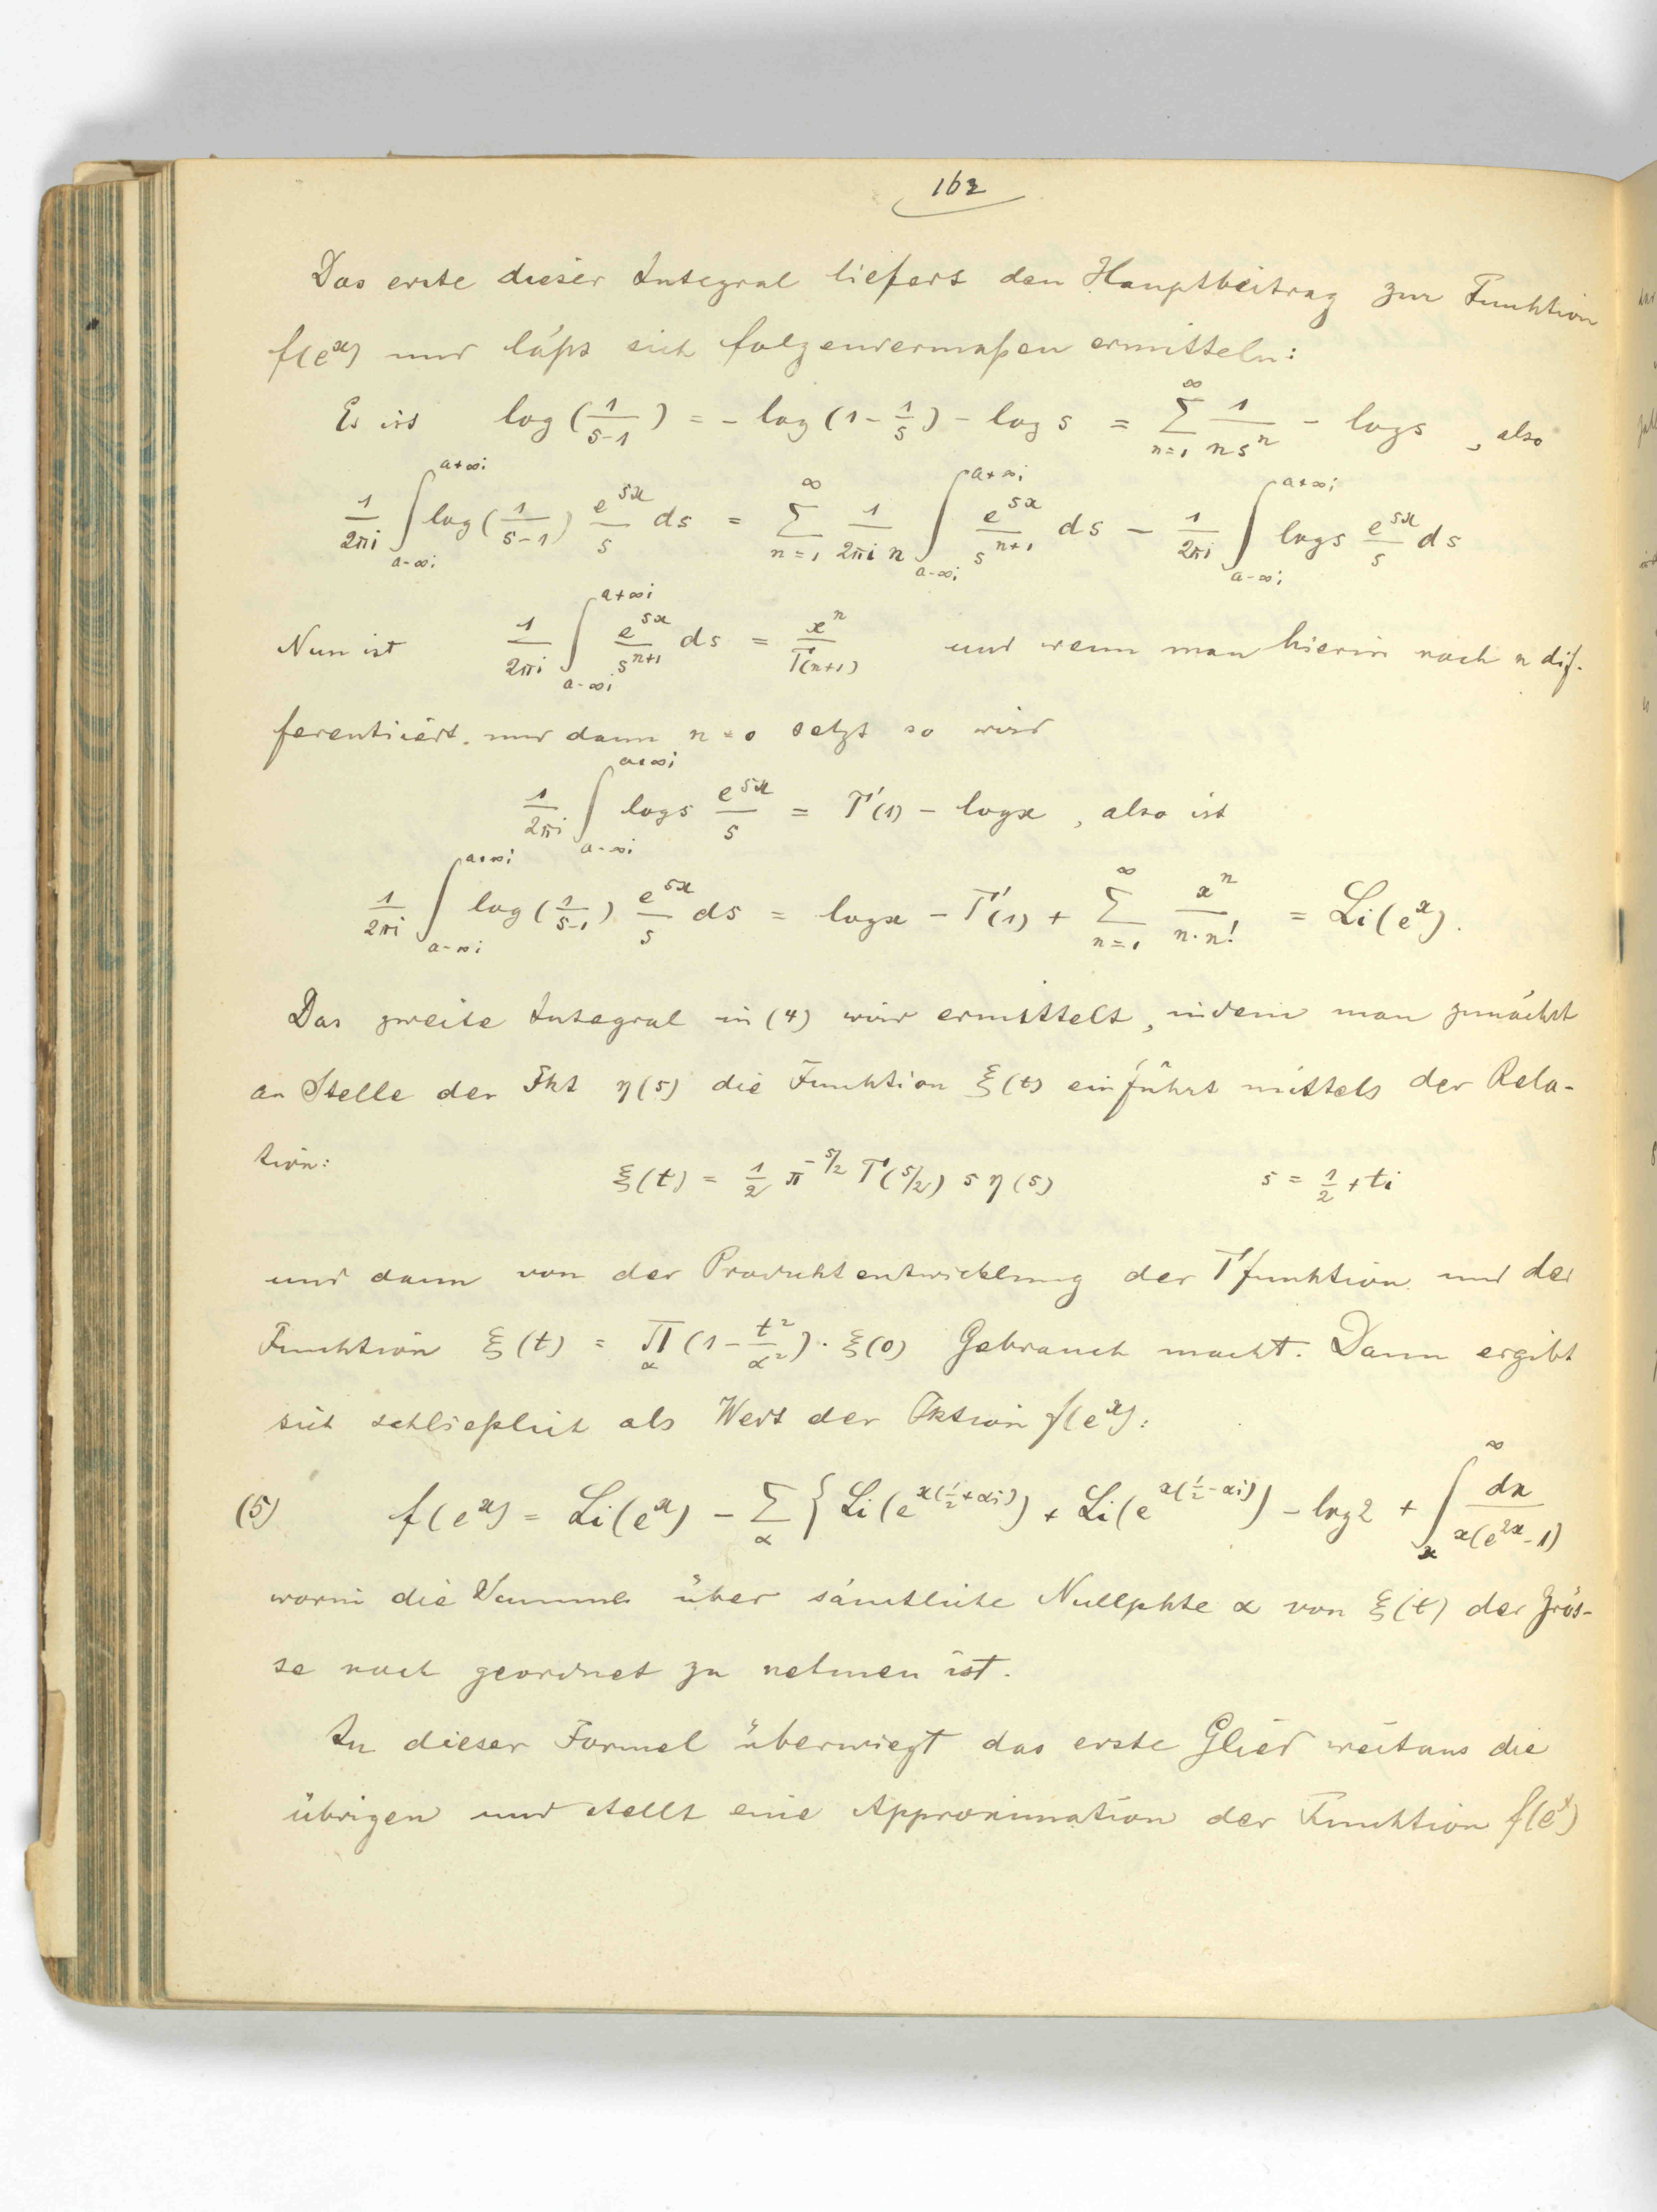 162
Das erste dieser Integral liefert den Hauptbeitrag zur Funktion
f(e^x) und läßt sich folgendermaßen ermitteln:
Es ist log(1/(s-1)) = - log(1 - 1/s) - log s = ∑_{n=1}^{∞} 1/(n s^n) - log s, also
1/(2πi) ∫_{a-∞i}^{a+∞i} log(1/(s-1)) e^{sx}/s ds = ∑_{n=1}^{∞} 1/(2πi n) ∫_{a-∞i}^{a+∞i} e^{sx}/s^{n+1} ds - 1/(2πi) ∫_{a-∞i}^{a+∞i} log s e^{sx}/s ds
Nun ist 1/(2πi) ∫_{a-∞i}^{a+∞i} e^{sx}/s^{n+1} ds = x^n/Γ(n+1) und wenn man hierin nach n dif-
ferentiiert, und dann n=0 setzt so wird
1/(2πi) ∫_{a-∞i}^{a+∞i} log s e^{sx}/s = Γ'(1) - log x, also ist
1/(2πi) ∫_{a-∞i}^{a+∞i} log(1/(s-1)) e^{sx}/s ds = log x - Γ'(1) + ∑_{n=1}^{∞} x^n/(n·n!) = Li(e^x).
Das zweite Integral in (4) wird ermittelt, indem man zunächst
an Stelle der Fkt η(s) die Funktion ξ(t) einführt mittels der Rela-
tion: ξ(t) = 1/2 π^{-s/2} Γ(s/2) s η(s) s = 1/2 + ti
und dann von der Produktentwicklung der Γfunktion und der
Funktion ξ(t) = ∏_α (1 - t²/α²)·ξ(0) Gebrauch macht. Dann ergibt
sich schließlich als Wert der Fktion f(e^x):
(5) f(e^x) = Li(e^x) - ∑_α {Li(e^{x(1/2+αi)}) + Li(e^{x(1/2-αi)}) - log 2 + ∫_x^∞ dx/(x(e^{2x}-1))
worin die Summe über sämtliche Nullpkte α von ξ(t) der Grös-
se nach geordnet zu nehmen ist.
In dieser Formel überwiegt das erste Glied weitaus die
übrigen und stellt eine Approximation der Funktion f(e^x)